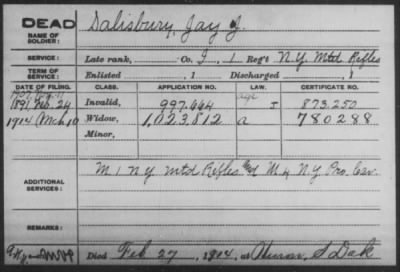 DEAD
NAME OF SOLDIER: Salisbury, Jay J.
SERVICE: Late rank, Co. I, 1 Reg't N.Y. Mtd Rifles
TERM OF SERVICE: Enlisted , 1 Discharged , 1
DATE OF FILING. CLASS. APPLICATION NO. LAW. CERTIFICATE NO.
1891 24 Invalid, 997.664 873.250
1914 Mch 10 Widow, 1,023,812 a 780288
Minor,
ADDITIONAL SERVICES: M 1 N Y mtd Rifles and M 4 N.Y. Pro. Cav.
REMARKS:
Died Feb 27, 1914, at Huron, S Dak